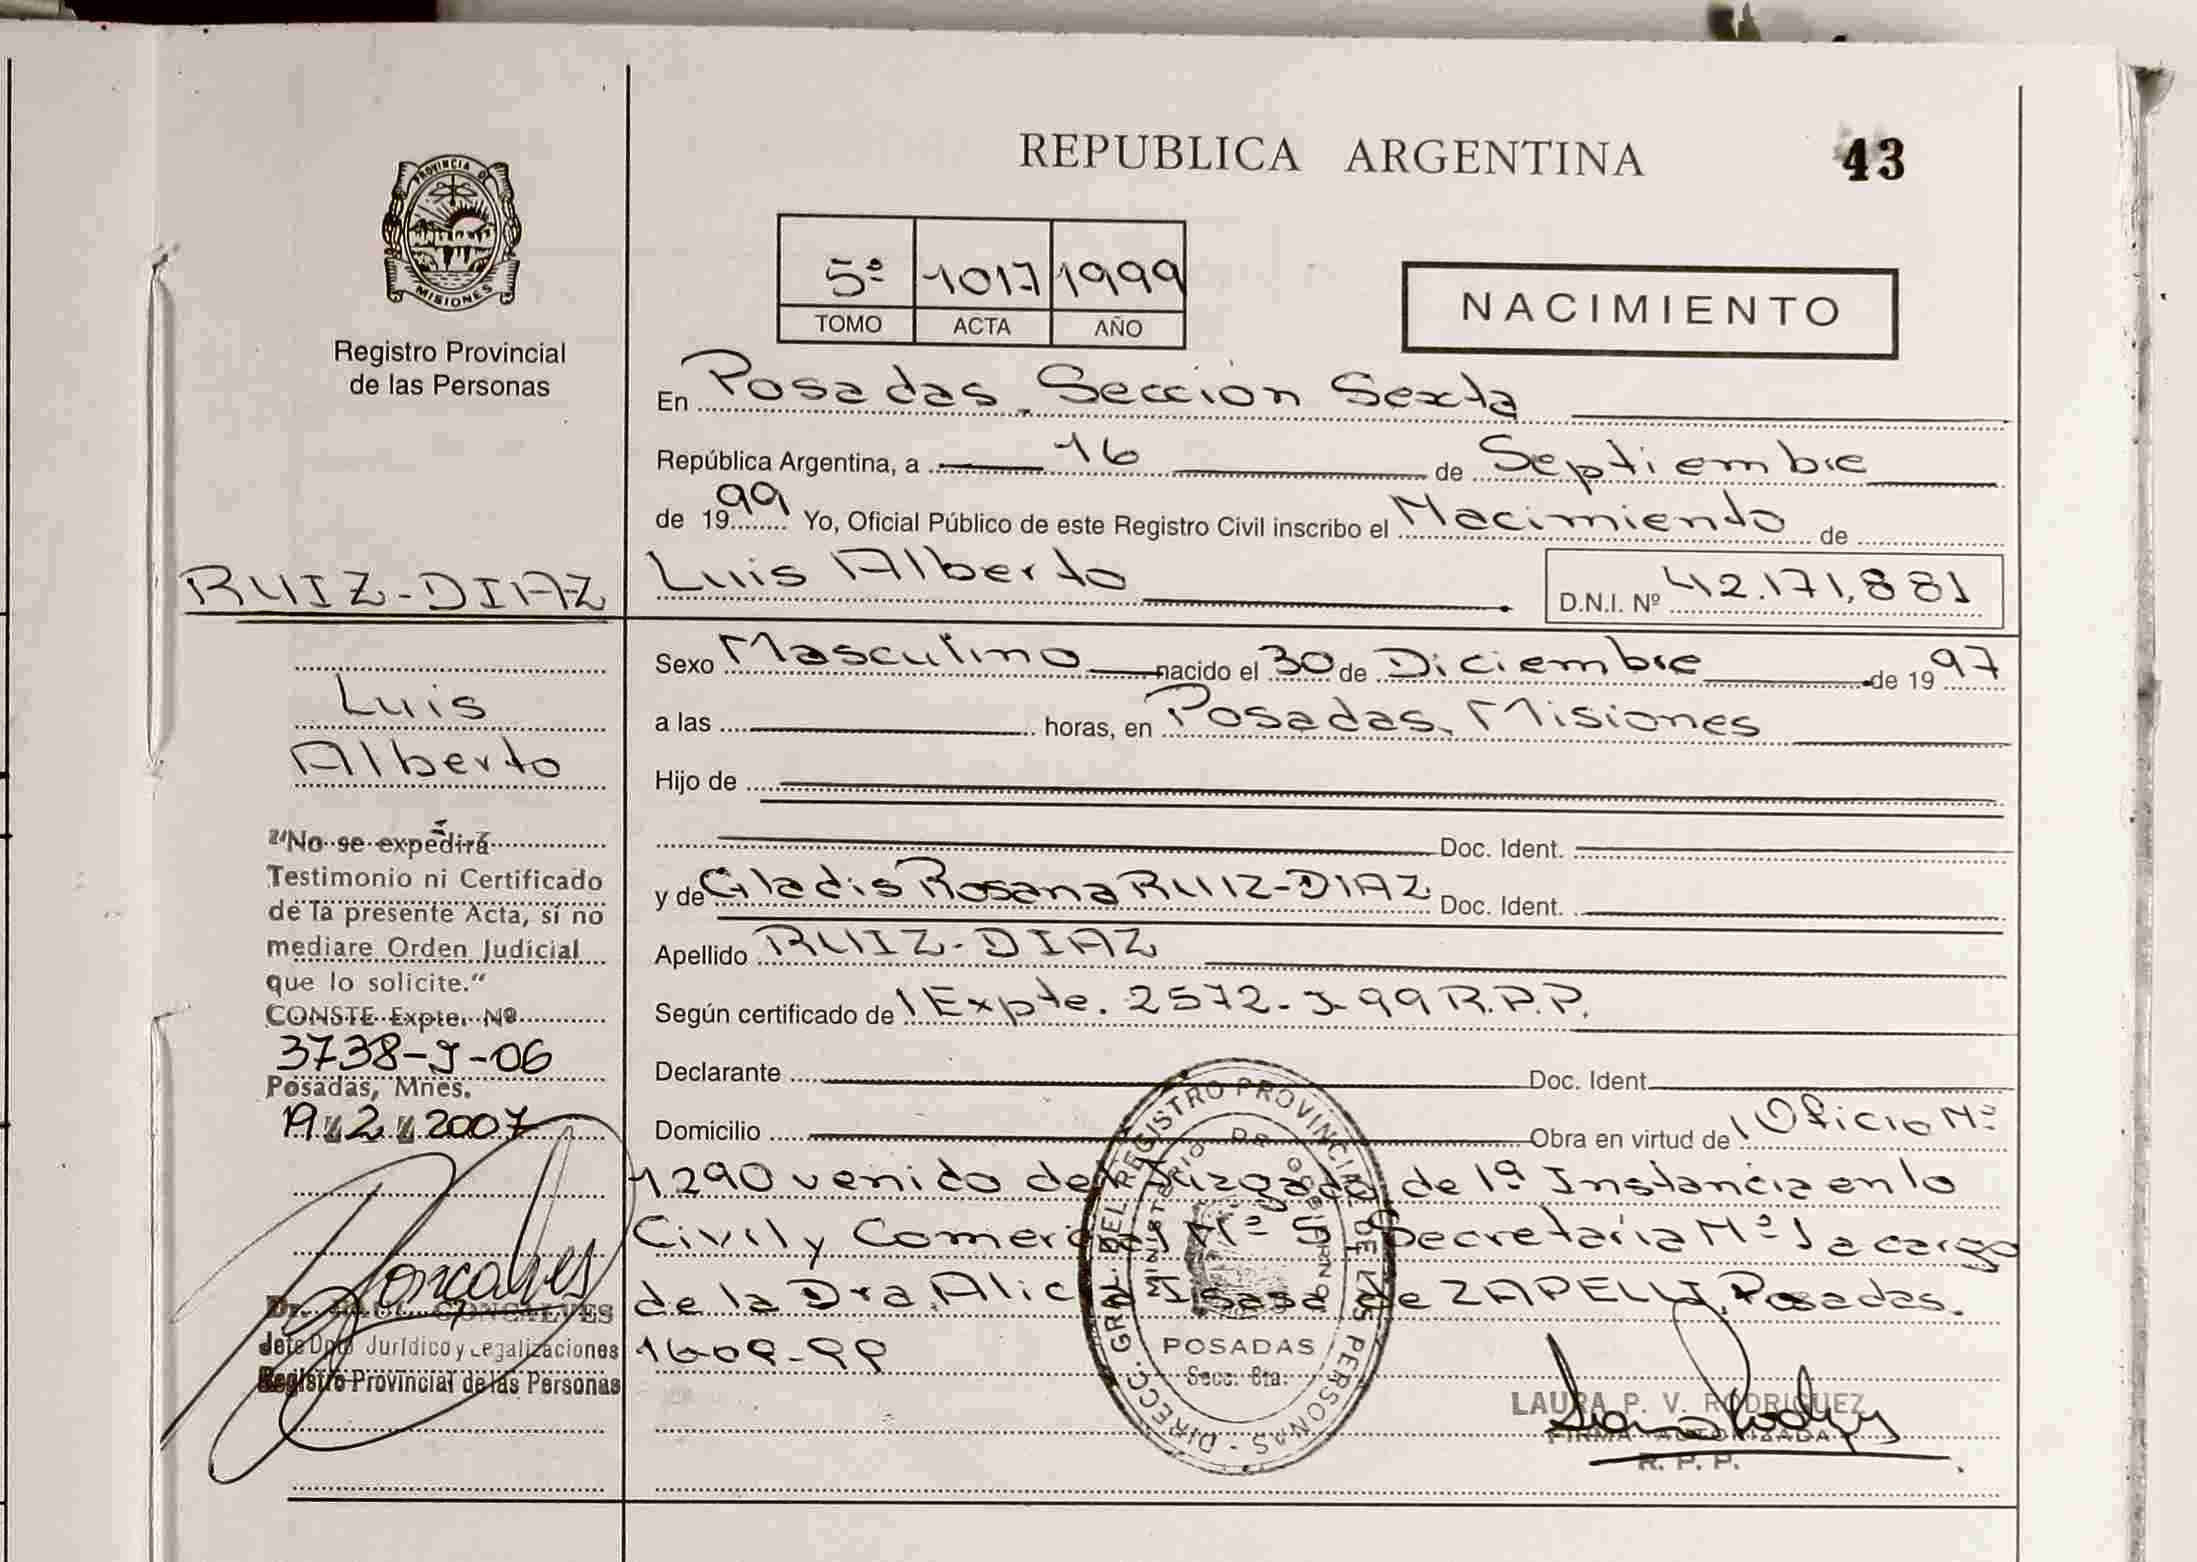 REPUBLICA ARGENTINA
43
PROVINCIA DE
MISIONES
Registro Provincial
de las Personas
5º 1017 1999
TOMO ACTA AÑO
NACIMIENTO
En Posadas, Sección Sexta
República Argentina, a 16 de Septiembre
de 1999 Yo, Oficial Público de este Registro Civil inscribo el Nacimiento de
Luis Alberto D.N.I. Nº 42.171.881
Sexo Masculino nacido el 30 de Diciembre de 1997
a las horas, en Posadas, Misiones
Hijo de
Doc. Ident.
y de Gladis Rosana RUIZ-DIAZ Doc. Ident.
Apellido RUIZ-DIAZ
Según certificado de Expte. 2572-J-99 R.P.P.
Declarante Doc. Ident.
Domicilio Obra en virtud de Oficio Nº
1290 venido del Juzgado de 1ª Instancia en lo
Civil y Comercial Nº 5 Secretaría Nº 1 a cargo
de la Dra. Alicia de ZAPELLI, Posadas.
1609-99
RUIZ-DIAZ
Luis
Alberto
"No se expedirá
Testimonio ni Certificado
de la presente Acta, si no
mediare Orden Judicial
que lo solicite."
CONSTE Expte. Nº
3738-J-06
Posadas, Mnes.
19 2 2007
Goncalves
Dr. GONCALVES
Jefe Dpto Jurídico y Legalizaciones
Registro Provincial de las Personas
DIRECC. GRAL. DEL REGISTRO PROVINCIAL DE LAS PERSONAS
MINISTERIO DE GOBIERNO
POSADAS
Secc. 6ta.
LAURA P. V. RODRIGUEZ
FIRMA AUTORIZADA
R. P. P.